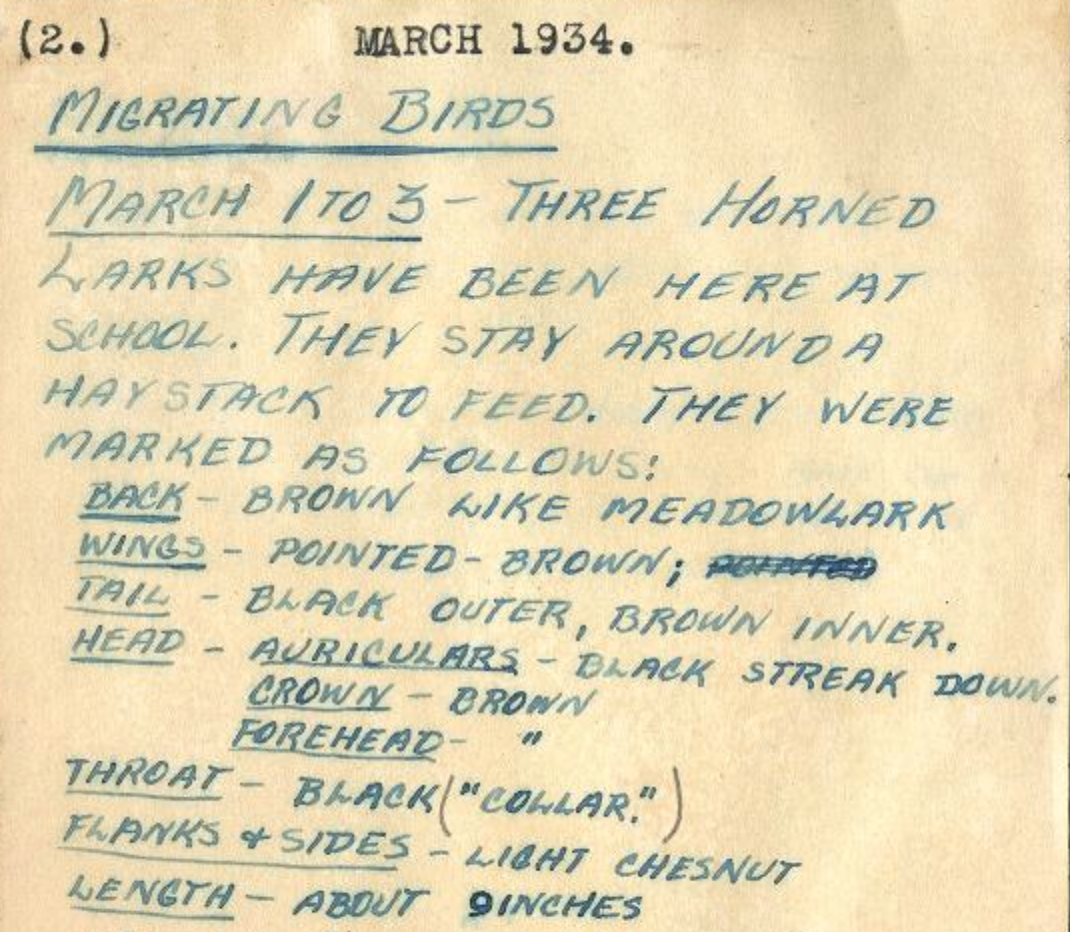 (2.) MARCH 1934.
MIGRATING BIRDS
MARCH 1 TO 3 - THREE HORNED
LARKS HAVE BEEN HERE AT
SCHOOL. THEY STAY AROUND A
HAYSTACK TO FEED. THEY WERE
MARKED AS FOLLOWS:
BACK - BROWN LIKE MEADOWLARK
WINGS - POINTED - BROWN; POINTED
TAIL - BLACK OUTER, BROWN INNER.
HEAD - AURICULARS - BLACK STREAK DOWN.
CROWN - BROWN
FOREHEAD - "
THROAT - BLACK ("COLLAR.")
FLANKS & SIDES - LIGHT CHESNUT
LENGTH - ABOUT 9 INCHES